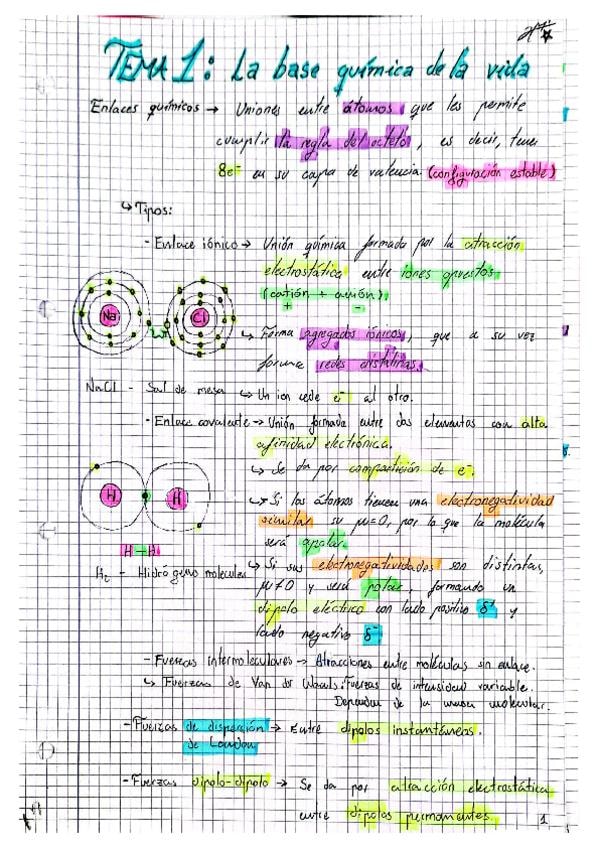 TEMA 1: La base química de la vida
Enlaces químicos → Uniones entre átomos que les permite
cumplir la regla del octeto, es decir, tener
8e⁻ en su capa de valencia. (configuración estable)
↳ Tipos:
- Enlace iónico → Unión química formada por la atracción
electrostática entre iones opuestos
(catión + anión)
+ -
Na Cl
↳ Forma agregados iónicos, que a su vez
forman redes cristalinas.
NaCl - Sal de mesa ↳ Un ion cede e⁻ al otro.
- Enlace covalente → Unión formada entre dos elementos con alta
afinidad electrónica.
↳ Se da por compartición de e⁻.
H H
↳ Si los átomos tienen una electronegatividad
similar su μ=0, por lo que la molécula
será apolar.
H-H
H₂ - Hidrógeno molecular
↳ Si sus electronegatividades son distintas,
μ≠0 y será polar, formando un
dipolo eléctrico con lado positivo δ⁺ y
lado negativo δ⁻
- Fuerzas intermoleculares → Atracciones entre moléculas sin enlace.
↳ Fuerzas de Van der Waals: Fuerzas de intensidad variable.
Dependen de la masa molecular.
- Fuerzas de dispersión → Entre dipolos instantáneos.
de London
- Fuerzas dipolo-dipolo → Se da por atracción electrostática
entre dipolos permanentes.
1